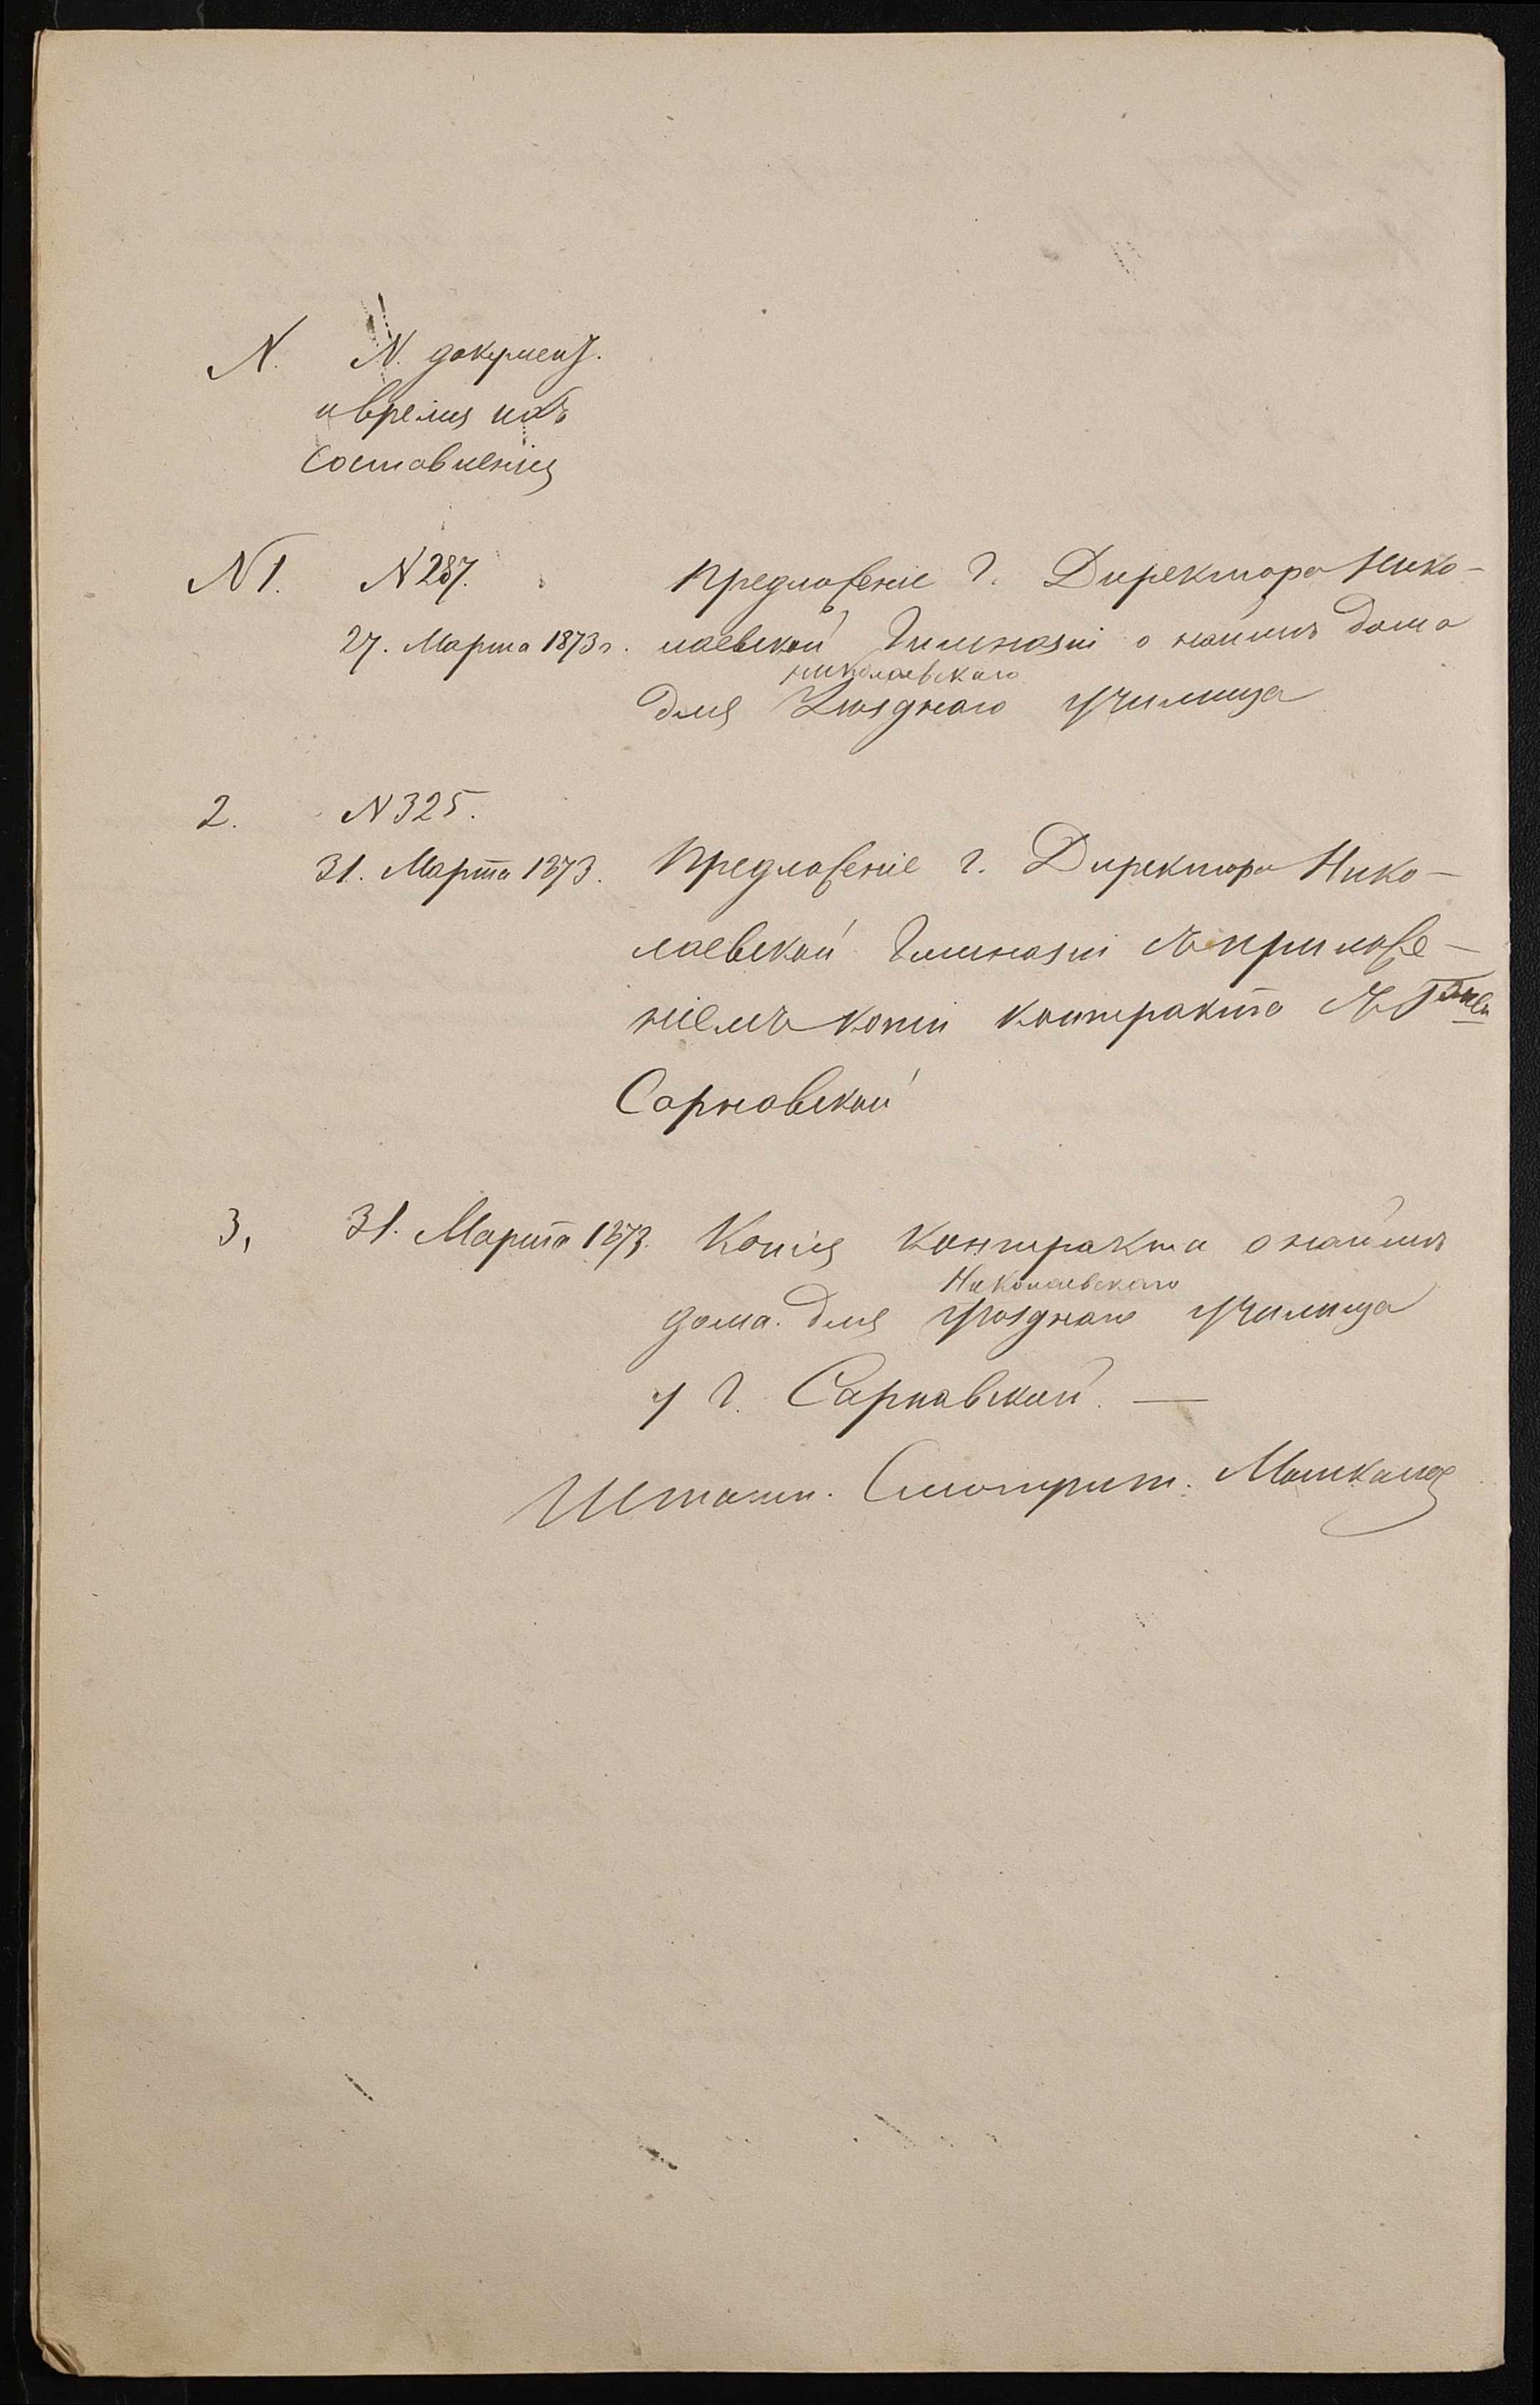 N. N. докумен.
и время ихъ
составленія
N 1. N 287. Предложеніе Г. Директора Нико-
27. Марта 1873 г. лаевской Гимназіи о наймѣ дома
николаевскаго
для Уѣзднаго училища
2. N 325.
31. Марта 1873. Предложеніе г. Директора Нико-
лаевской Гимназіи съ приложе-
ніемъ копіи контракта съ
Сарнавской
3, 31. Марта 1873. Копія контракта о наймѣ
Николаевскаго
дома для Уѣзднаго училища
у Г. Сарнавской. —
Штатн. Смотрит.